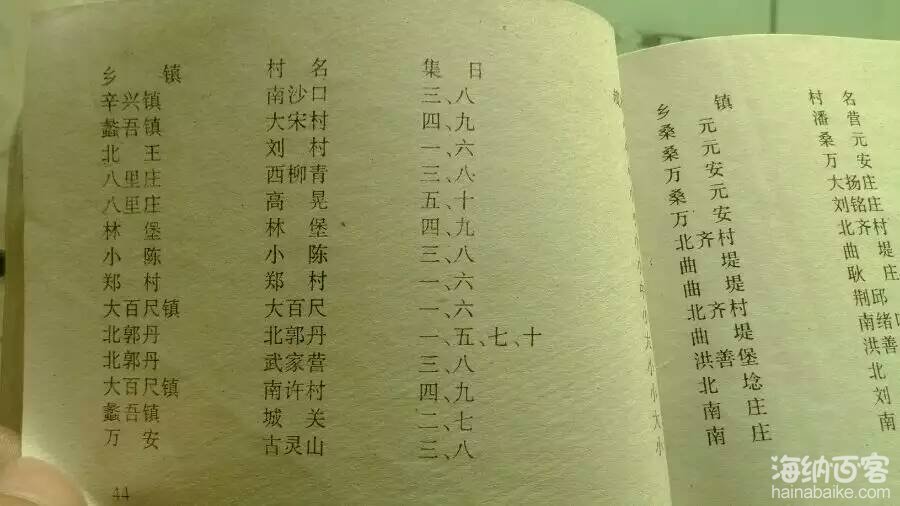 乡 镇 村 名 集 日
辛兴镇 南沙口 三、八
蠡吾镇 大宋村 四、九
北 王 刘 村 一、六
八里庄 西柳青 三、八
八里庄 高 晃 五、十
林 堡 林 堡 四、九
小 陈 小 陈 三、八
郑 村 郑 村 一、六
大百尺镇 大百尺 一、六
北郭丹 北郭丹 一、五、七、十
北郭丹 武家营 三、八
大百尺镇 南许村 四、九
蠡吾镇 城 关 二、七
万 安 古灵山 三、八
44
乡 镇 村 名
桑 元 潘 营
桑 元 桑 元
万 安 万 安
桑 元 大扬庄
万 安 刘铭庄
北齐村 北齐村
曲 堤 曲 堤
曲 堤 耿 庄
北齐村 荆 邱
曲 堤 南绪口
洪善堡 洪善堡
北 埝 北
南 庄 刘
南 庄 南
海纳百客
hainabaike.com